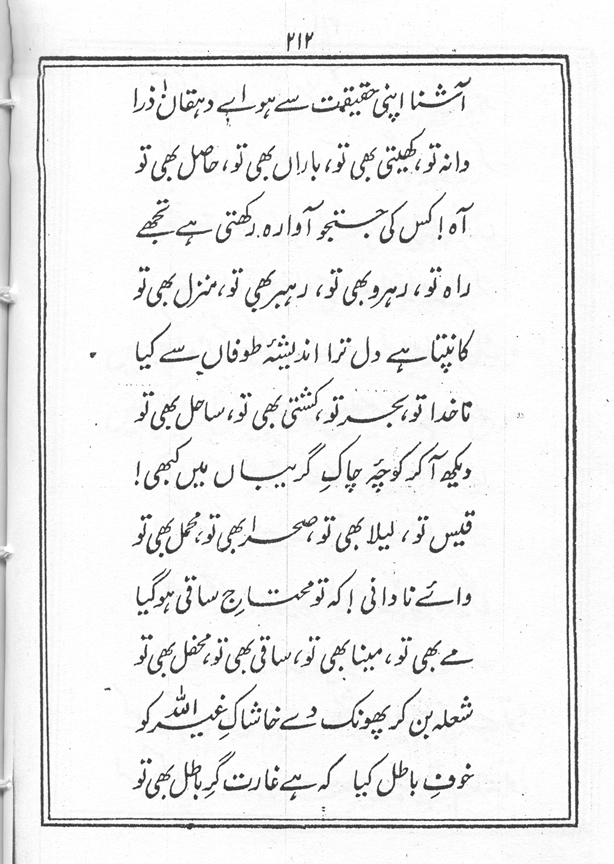 ۲۱۲
آشنا اپنی حقیقت سے ہو اے دہقاں ذرا
دانہ تو، کھیتی بھی تو، باراں بھی تو، حاصل بھی تو
آہ! کس کی جستجو آوارہ رکھتی ہے تجھے
راہ تو، رہرو بھی تو، رہبر بھی تو، منزل بھی تو
کانپتا ہے دل ترا اندیشۂ طوفاں سے کیا
ناخدا تو، بحر تو، کشتی بھی تو، ساحل بھی تو
دیکھ آ کر کوچۂ چاکِ گریباں میں کبھی!
قیس تو، لیلا بھی تو، صحرا بھی تو، محمل بھی تو
وائے نادانی! کہ تو محتاجِ ساقی ہو گیا
مے بھی تو، مینا بھی تو، ساقی بھی تو، محفل بھی تو
شعلہ بن کر پھونک دے خاشاکِ غیر اللہ کو
خوفِ باطل کیا کہ ہے غارت گرِ باطل بھی تو